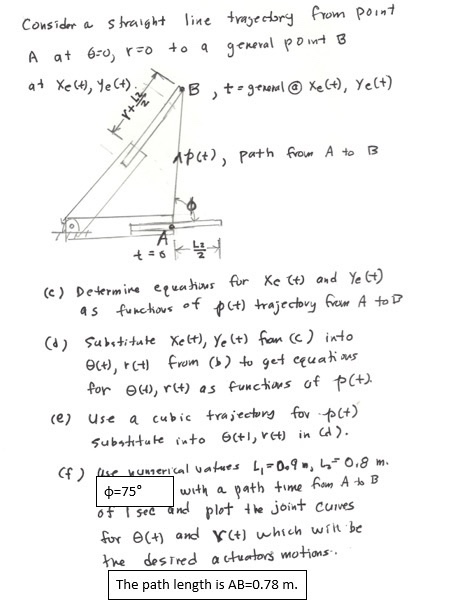 Consider a straight line trajectory from point
A at θ=0, r=0 to a general point B
at Xe(t), Ye(t).
B, t = general @ Xe(t), Ye(t)
r + L2/2
p(t), path from A to B
ϕ
A
t = 0
L2/2
(c) Determine equations for Xe(t) and Ye(t)
as functions of p(t) trajectory from A to B
(d) Substitute Xe(t), Ye(t) from (c) into
θ(t), r(t) from (b) to get equations
for θ(t), r(t) as functions of p(t).
(e) Use a cubic trajectory for p(t)
substitute into θ(t), r(t) in (d).
(f) Use numerical values L1=0.9 m, L2=0.8 m.
ϕ=75° with a path time from A to B
of 1 sec and plot the joint curves
for θ(t) and r(t) which will be
the desired actuators motions.
The path length is AB=0.78 m.